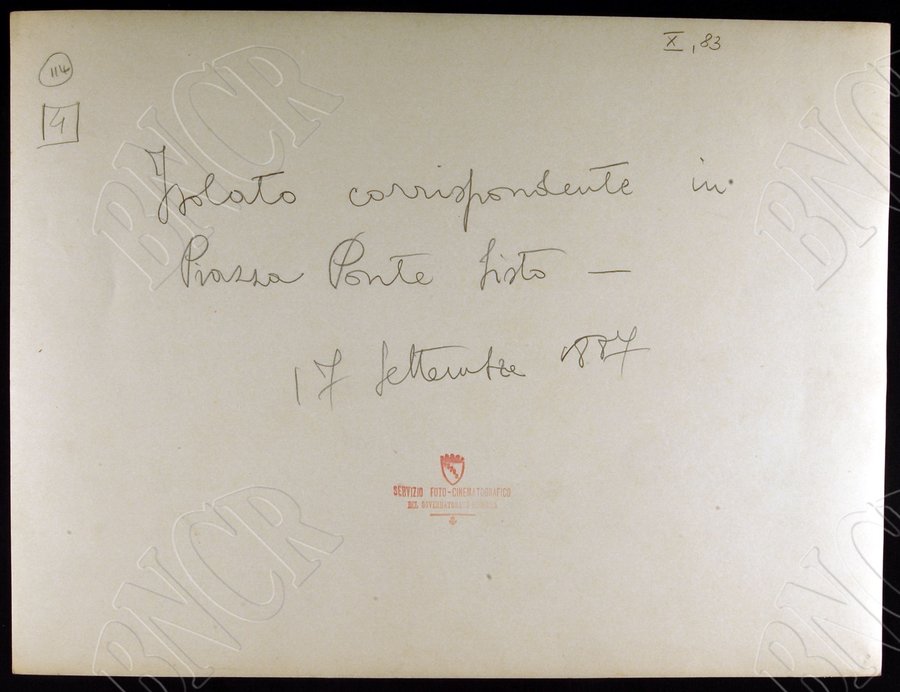 X, 83
114
4
Isolato corrispondente in
Piazza Ponte Sisto —
17 Settembre 1887
SERVIZIO FOTO-CINEMATOGRAFICO
DEL GOVERNATORATO DI ROMA
BNCR
BNCR
BNCR
BNCR